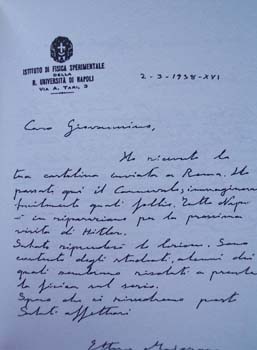 ISTITUTO DI FISICA SPERIMENTALE
DELLA
R. UNIVERSITÀ DI NAPOLI
VIA A. TARI, 3
2-3-1938-XVI
Caro Giovannino,
Ho ricevuto la
tua cartolina inviata a Roma. Ho
passato qui il Carnevale, immaginerai
facilmente quali follie. Tutta Napoli
è in riparazione per la prossima
visita di Hitler.
Sabato riprenderò le lezioni. Sono
contento degli studenti, alcuni dei
quali sembrano risoluti a prendere
la fisica sul serio.
Spero che ci rivedremo presto
Saluti affettuosi
Ettore Majorana